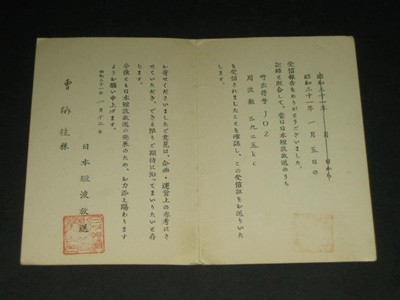 昭和三十一年 一月 五日の
受信報告をありがとうございました。
記録と照合して、当日日本短波放送のうち
呼出符号 JOZ
周波数 三九二五kc
を受信されましたことを確認し、この受信証をお送りいた
します。
お寄せくださいましたご意見は、企画・運営上の参考にさ
せていただき、できる限りご期待に沿ってまいりたいと存
じます。
今後とも日本短波放送の発展のため、お力添え賜わります
ようお願い申上げます。
昭和三十一年 一月十二日
日本短波放送
様